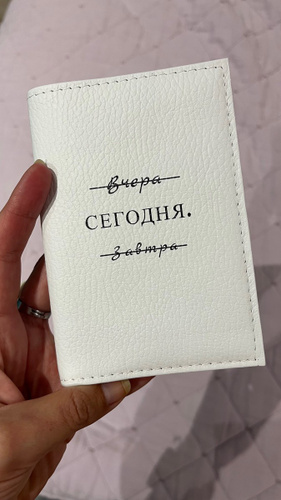 Вчера
СЕГОДНЯ.
Завтра